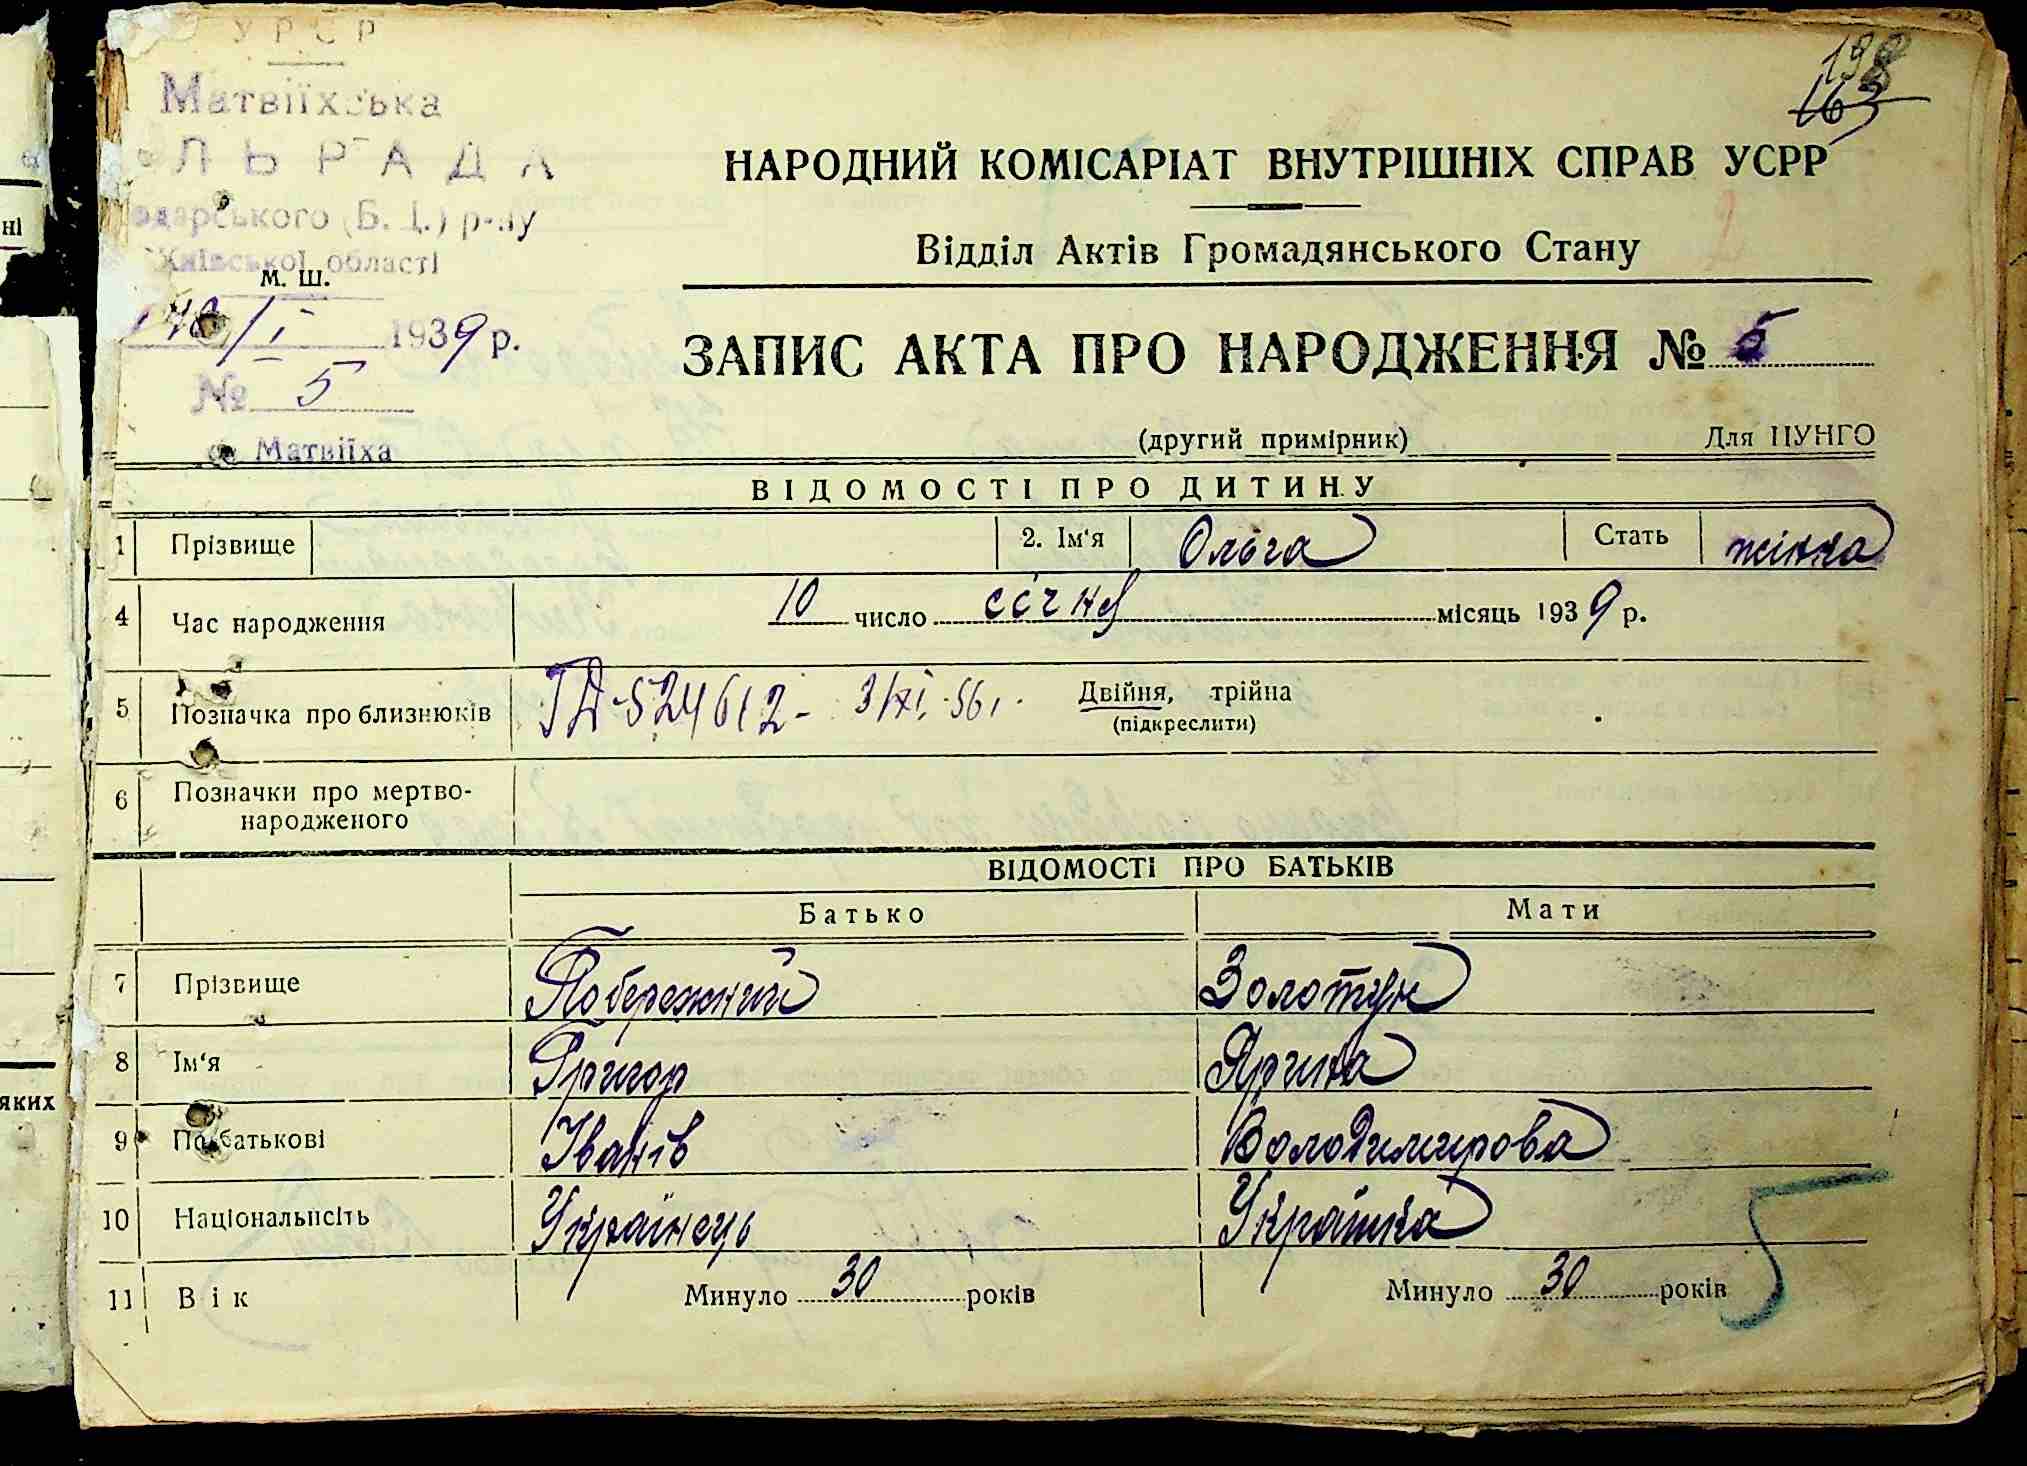 УРСР
Матвіїхська
ЛЬРАДА
одарського (Б. Ц.) р-ну
Київської області
м. ш.
/І 1939 р.
№ 5
с. Матвіїха
198
163
НАРОДНИЙ КОМІСАРІАТ ВНУТРІШНІХ СПРАВ УСРР
Відділ Актів Громадянського Стану
ЗАПИС АКТА ПРО НАРОДЖЕННЯ № 5
(другий примірник) Для ЦУНГО
ВІДОМОСТІ ПРО ДИТИНУ
1 Прізвище 2. Ім'я Ольга Стать жінка
4 Час народження 10 число січня місяць 1939 р.
5 Позначка про близнюків ГД-524612- 3/XI. 56 р. Двійня, трійна
(підкреслити)
6 Позначки про мертво-
народженого
ВІДОМОСТІ ПРО БАТЬКІВ
Батько Мати
7 Прізвище Побережний Золотун
8 Ім'я Григор Ярина
9 По батькові Іванів Володимирова
10 Національність Українець Українка
11 Вік Минуло 30 років Минуло 30 років
5
ні
яких